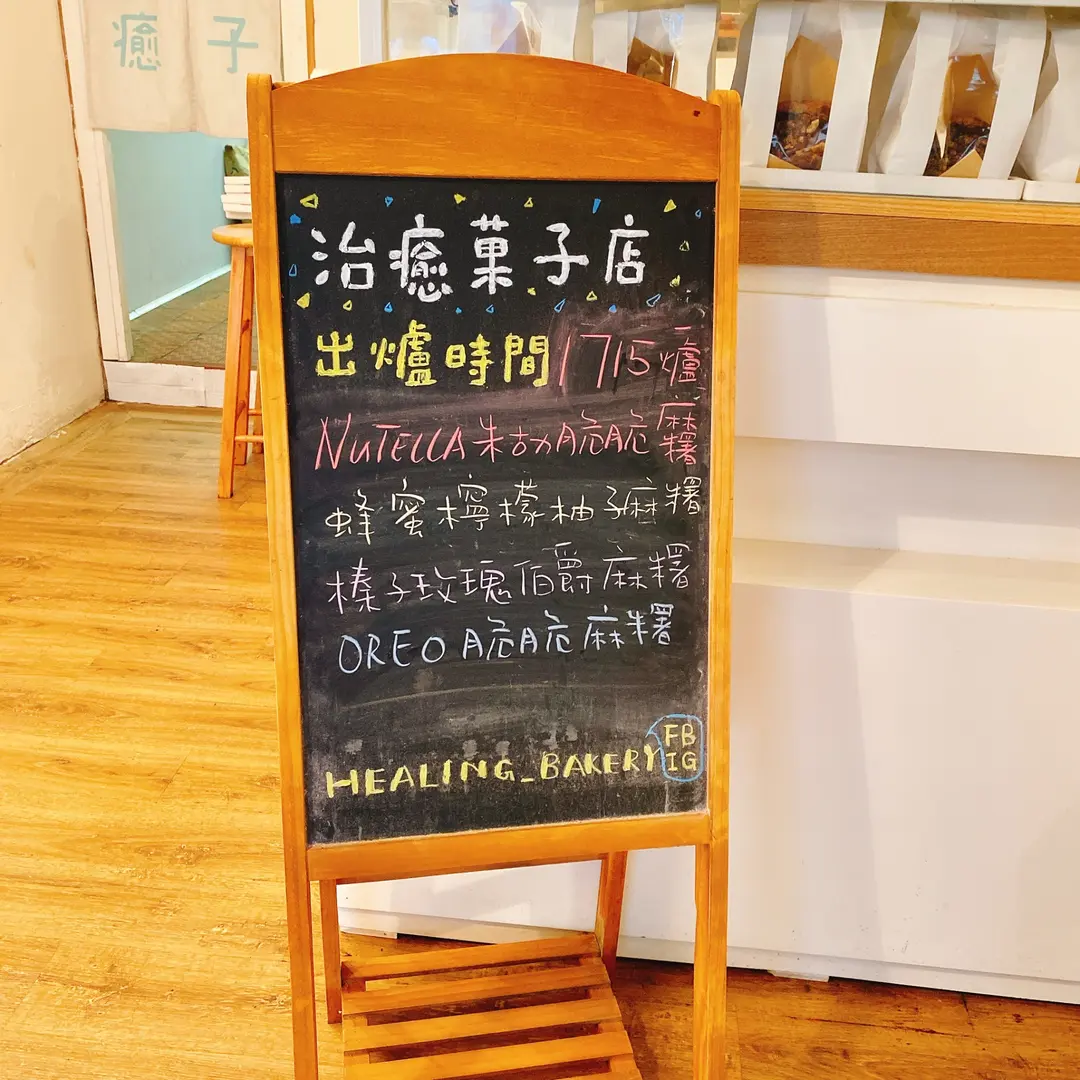 癒 子
治癒菓子店
出爐時間 1715爐
NUTELLA 朱古力脆脆麻糬
蜂蜜檸檬柚子麻糬
榛子玫瑰伯爵麻糬
OREO脆脆麻糬
HEALING_BAKERY FB
IG